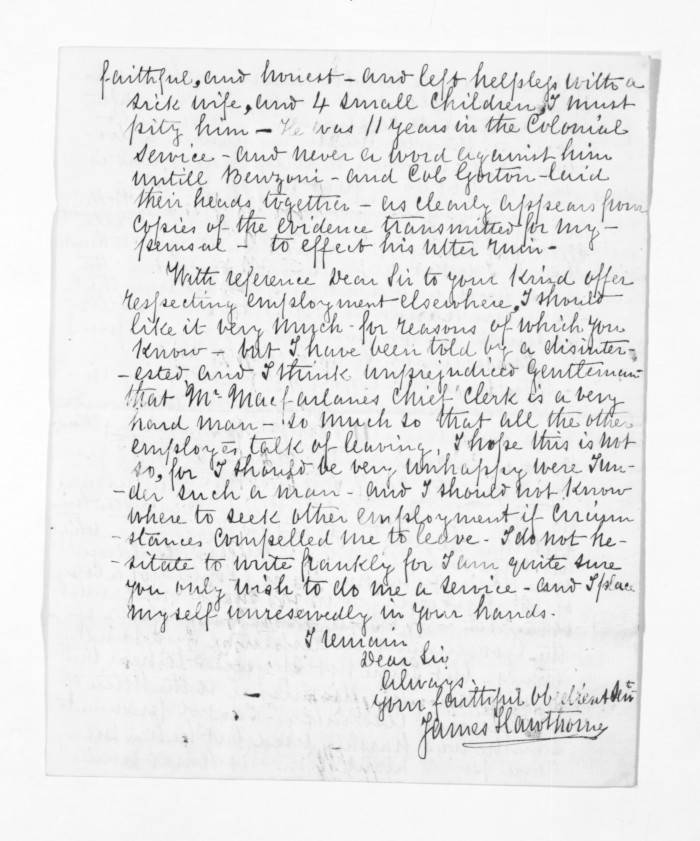 faithful, and honest - and left helpless with a
sick wife, and 4 small children, I must
pity him - He was 11 years in the Colonial
Service - and never a word against him
untill - and Col Gorton - laid
their heads together - as clearly appears from
copies of the evidence transmitted for my -
perusal - to effect his utter ruin -
With reference Dear Sir to your kind offer
respecting employment elsewhere, I should
like it very much - for reasons of which you
know - but I have been told by a disinter-
-ested and I think unprejudiced Gentleman
that Mr Macfarlanes chief clerk is a very
hard man - so much so that all the other
employes, talk of leaving, I hope this is not
so, for I should be very unhappy were I un-
-der such a man - and I should not know
where to seek other employment if Circum
-stances compelled me to leave - I do not he-
-sitate to write frankly for I am quite sure
you only wish to do me a service - and I place
myself unreservedly in your hands -
I remain
Dear Sir
Always
Your faithful obedient
James Hawthorne